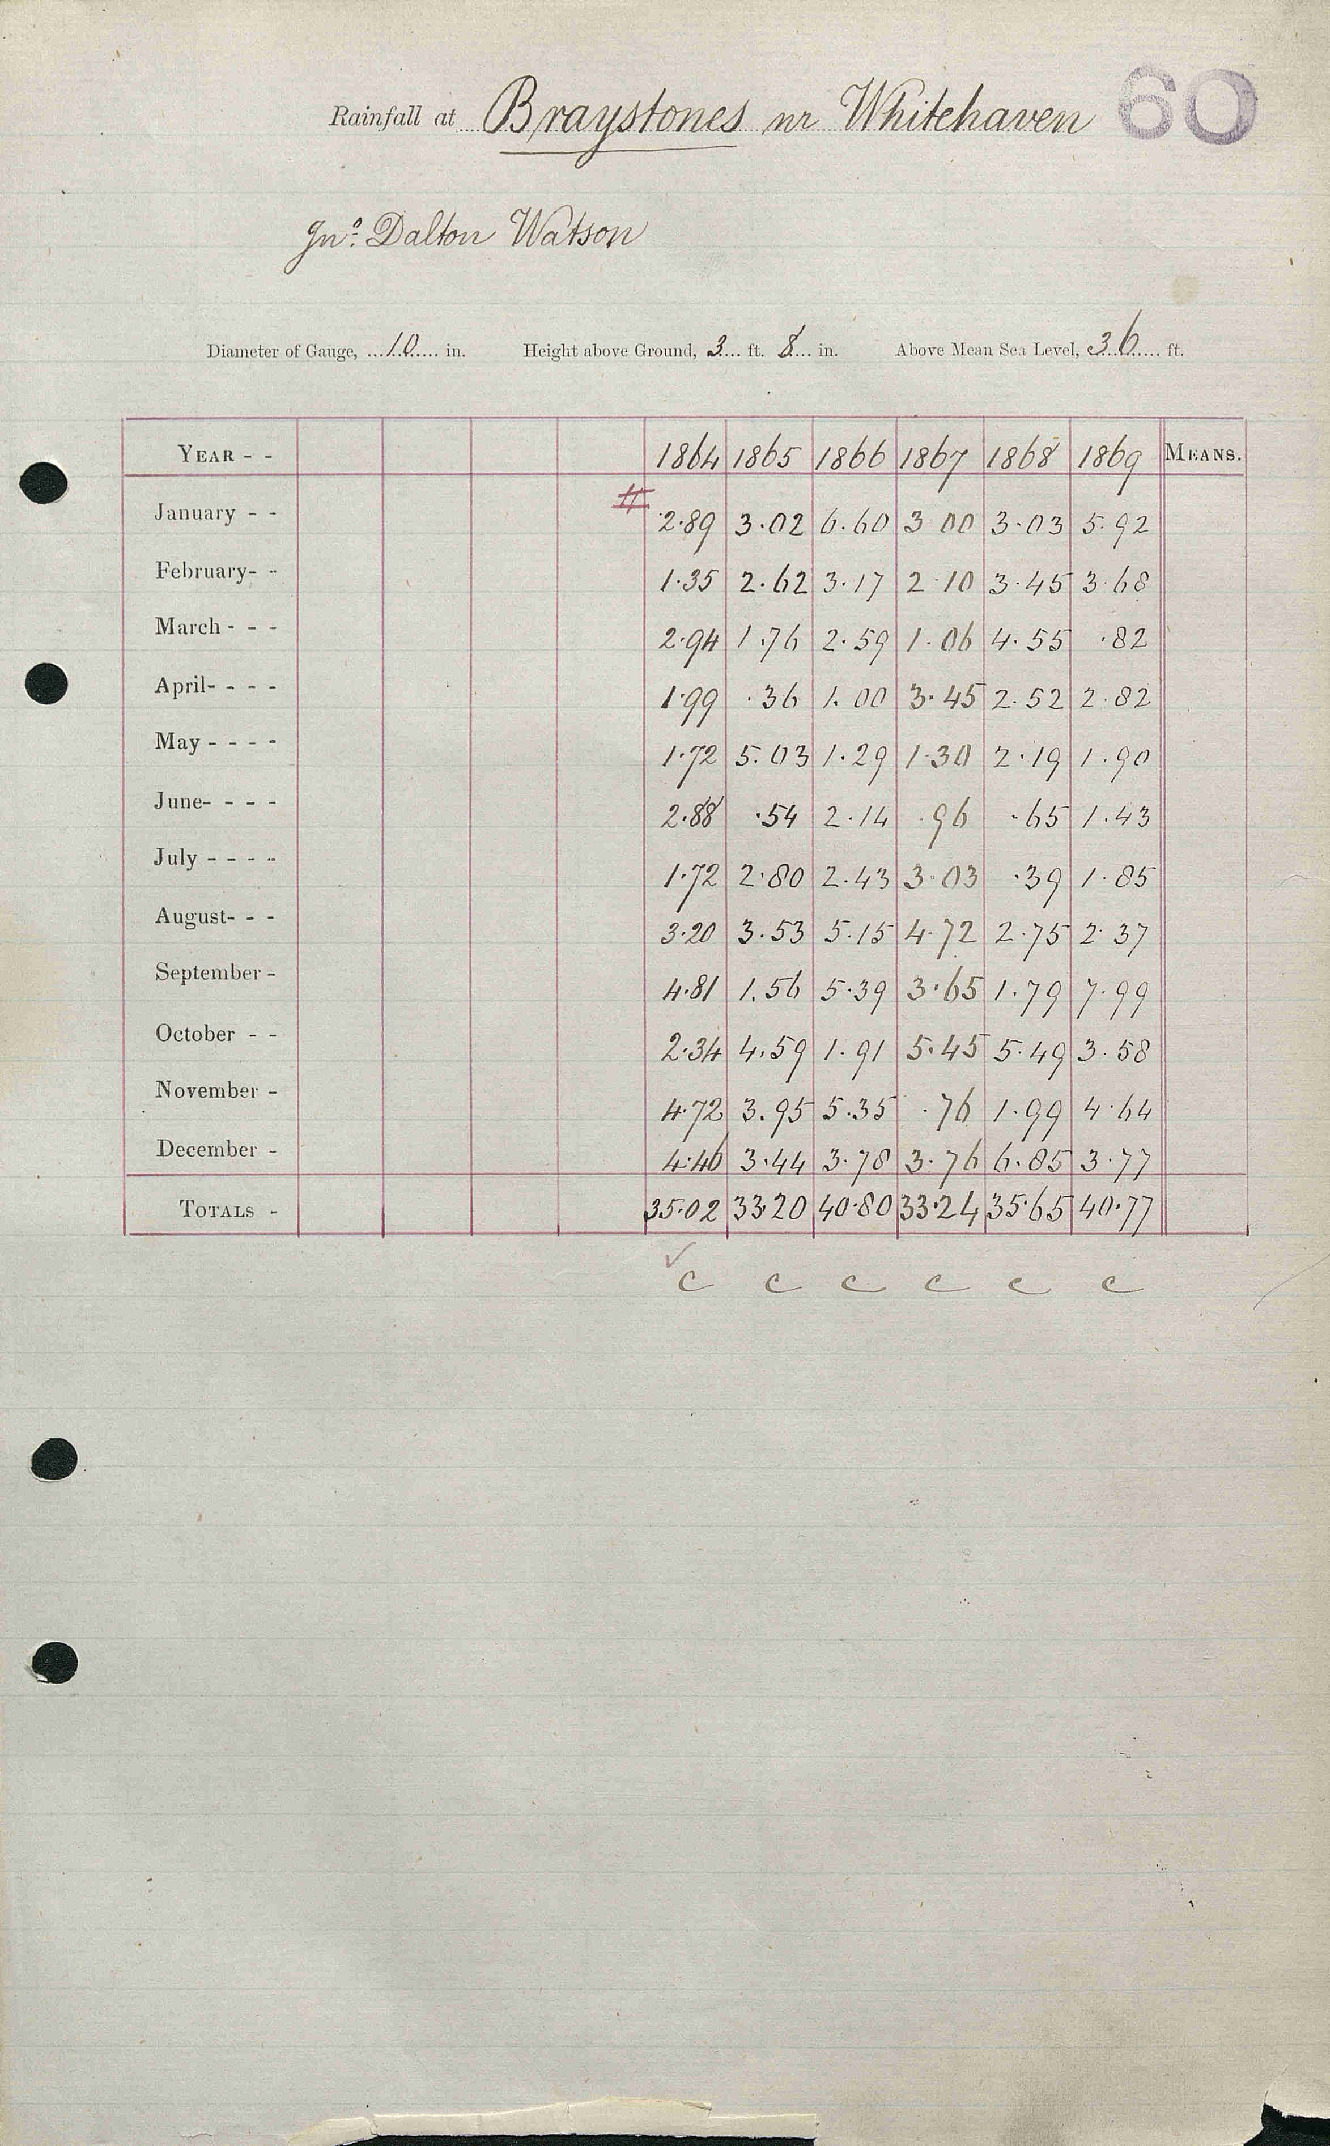 Rainfall at Braystones nr Whitehaven 60
Jno. Dalton Watson
Diameter of Gauge, 10 in. Height above Ground, 3 ft. 8 in. Above Mean Sea Level, 36 ft.
YEAR - - 1864 1865 1866 1867 1868 1869 MEANS.
January - - # 2.89 3.02 6.60 3 00 3.03 5.92
February- - 1.35 2.62 3.17 2.10 3.45 3.68
March - - - 2.94 1.76 2.59 1.06 4.55 .82
April- - - - 1.99 .36 1.00 3.45 2.52 2.82
May - - - - 1.72 5.03 1.29 1.30 2.19 1.90
June- - - - 2.88 .54 2.14 .96 .65 1.43
July - - - - 1.72 2.80 2.43 3.03 .39 1.85
August- - - 3.20 3.53 5.15 4.72 2.75 2.37
September - 4.81 1.56 5.39 3.65 1.79 7.99
October - - 2.34 4.59 1.91 5.45 5.49 3.58
November - 4.72 3.95 5.35 .76 1.99 4.64
December - 4.46 3.44 3.78 3.76 6.85 3.77
TOTALS - 35.02 33.20 40.80 33.24 35.65 40.77
✓
c c c c c c